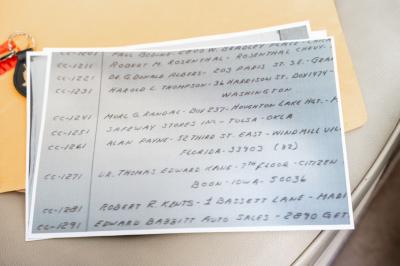 CC-1201 PAUL BODINE - 2800 W. BRADLEY PLACE - LANE
CC-1211 ROBERT M. ROSENTHAL - ROSENTHAL CHEVR.
CC-1221 DR. G. DONALD ALBERS - 203 PARIS ST. S.E. - GRAN
CC-1231 HAROLD L. THOMPSON - 36 HARRISON ST. BOX 1474 -
WASHINGTON
CC-1241 MURL G. RANDAL - BOX 237 - HOUGHTON LAKE HGT. -
CC-1251 SAFEWAY STORES INC - TULSA - OKLA
CC-1261 ALAN PAYNE - 52 THIRD ST. EAST - WINDMILL VIL
FLORIDA - 33903 (82)
CC-1271 DR. THOMAS EDWARD KANE - 7TH FLOOR - CITIZEN
BOON - IOWA - 50036
CC-1281 ROBERT R. KENTS - 1 BASSETT LANE - MADI
CC-1291 EDWARD BABBITT AUTO SALES - 2890 GET